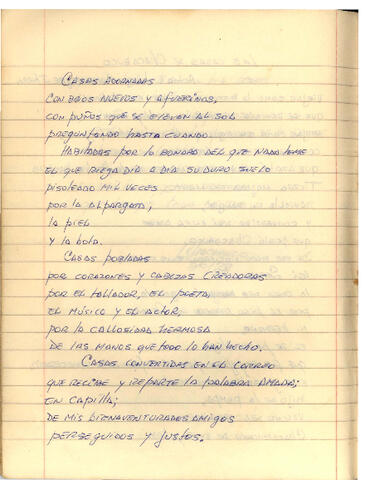 CASAS ADORNADAS
CON BRIOS NUEVOS Y AFUERINOS,
CON PUÑOS QUE SE ELEVAN AL SOL
PREGUNTANDO HASTA CUANDO.
HABITADAS POR LA BONDAD DEL QUE NADA TEME
EL QUE RIEGA DIA A DIA SU DURO SUELO
PISOTEADO MIL VECES
POR LA ALPARGATA,
LA PIEL
Y LA BOTA.
CASAS POBLADAS
POR CORAZONES Y CABEZAS CREADORAS
POR EL TALLADOR, EL POETA,
EL MÚSICO Y EL ACTOR;
POR LA CALLOSIDAD HERMOSA
DE LAS MANOS QUE TODO LO HAN HECHO.
CASAS CONVERTIDAS EN EL CORREO
QUE RECIBE Y REPARTE LA PALABRA AMADA;
EN CAPILLA;
DE MIS BIENAVENTURADOS AMIGOS
PERSEGUIDOS Y JUSTOS.